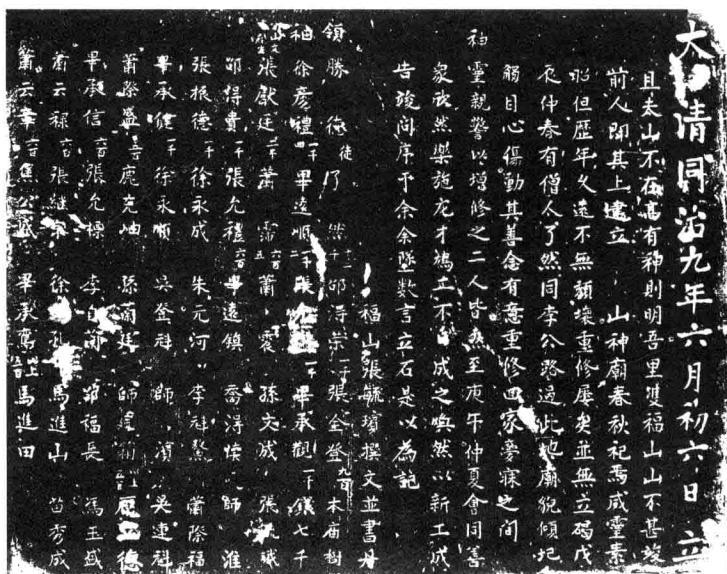 大清同治九年六月初六日立
且太山不在高有神則明吾里雙福山山不甚峻
前人即其上建立山神廟春秋祀焉威靈素
昭但歷年久遠不無頹壞重修屢矣並無立碣戊
辰仲春有僧人了然同李公路過此地廟貌傾圮
觸目心傷動其善念有意重修回家夢寐之間
神靈親警以增修之二人皆然至庚午仲夏會同善
眾欣然樂施庀才鳩工不日成之煥然以新工成
告竣問序于余余墜數言立石是以為記
福山張毓璸撰文並書丹
領勝德徒了然千邱得崇一千張全登九百本廟樹
袖徐彥禮一千畢遠順一千張一千畢承觀一千錢七千
張獻廷蕭霈蕭震孫文成張
邱得貴一千張允禮六百畢遠鎮喬得懷師淮
張振德一千徐永成朱元河李科鰲蕭際福
畢承健一千徐永順吳登科師濱吳連科
蕭際盛鹿克岫孫蘭廷師德
畢承信六百張允標李福長馬玉盛
蕭云祿六百張繼徐馬進山苗秀成
蕭云峯六百焦公盛畢承馬進田